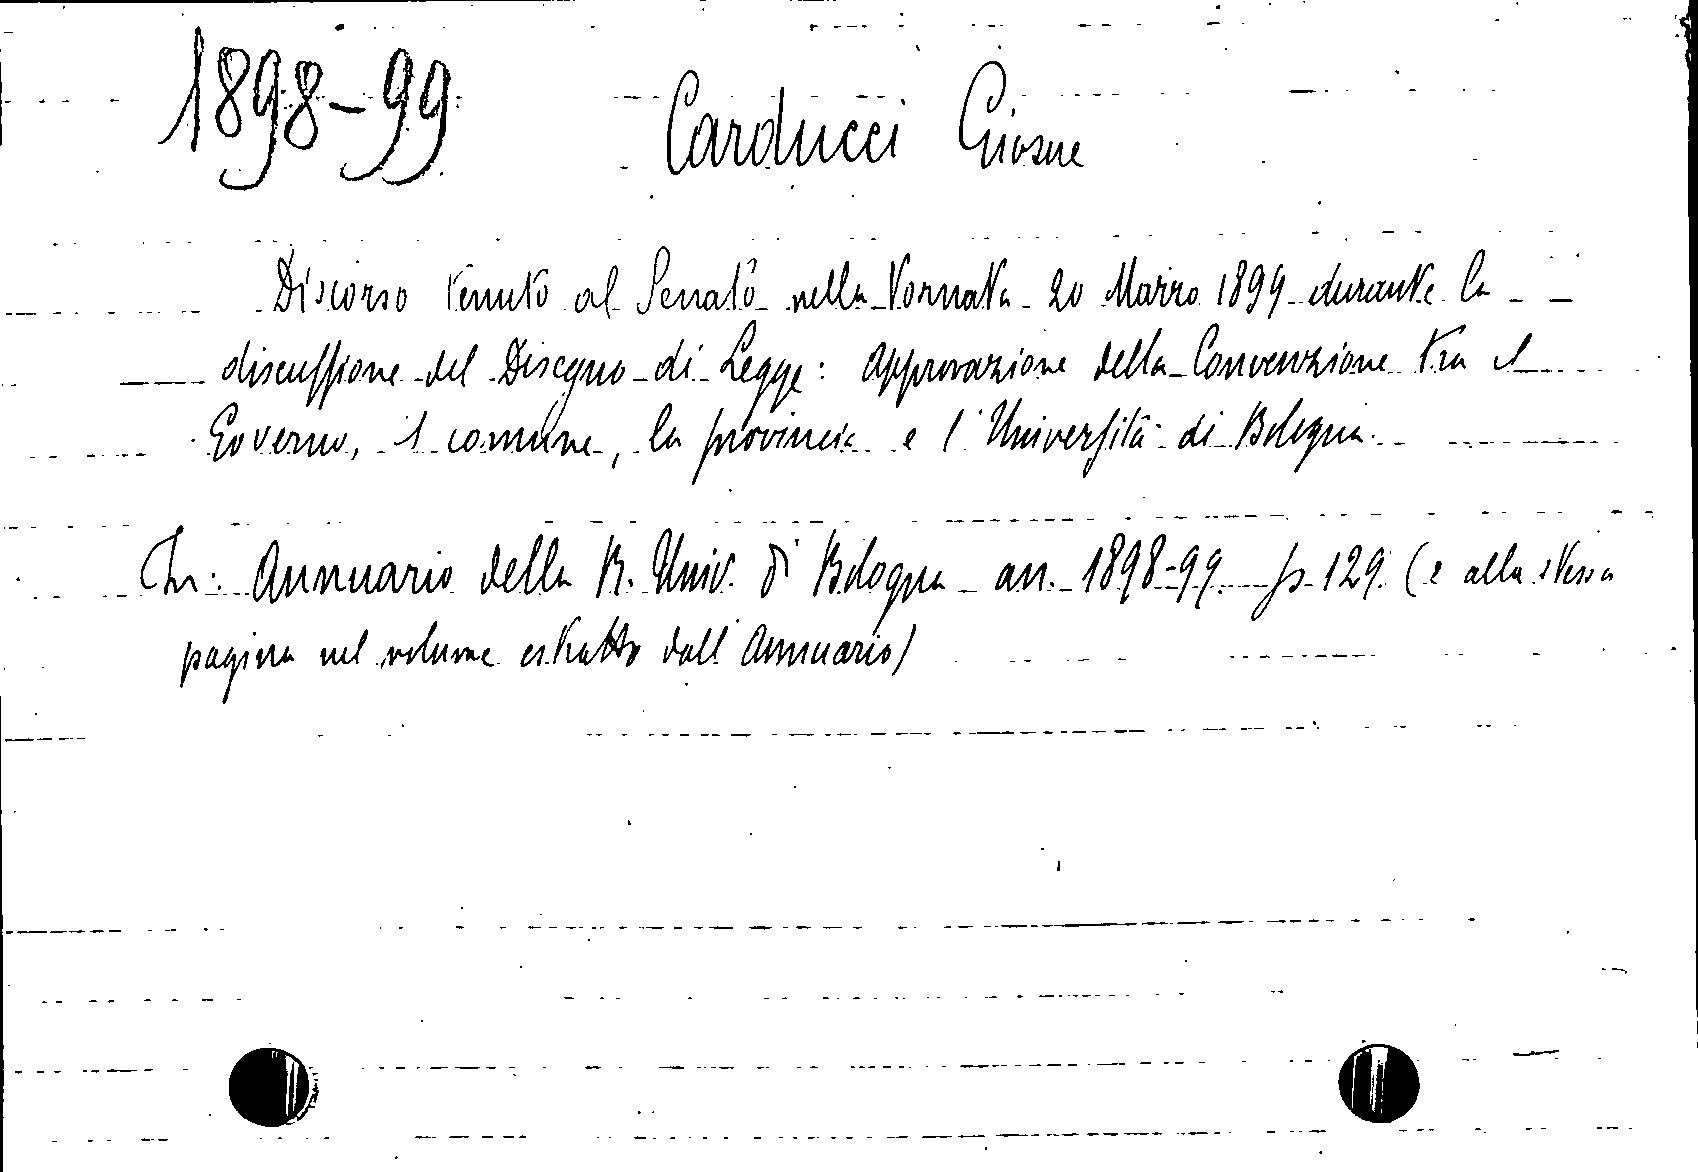 1898-99 Carducci Giosue
Discorso tenuto al Senato nella tornata 20 Marzo 1899 durante la
discussione del Disegno di Legge: Approvazione della Convenzione tra il
Governo, il comune, la provincia e l'Università di Bologna.
In: Annuario della R. Univ. di Bologna an. 1898-99 p. 129. (e alla stessa
pagina nel volume estratto dall'Annuario)